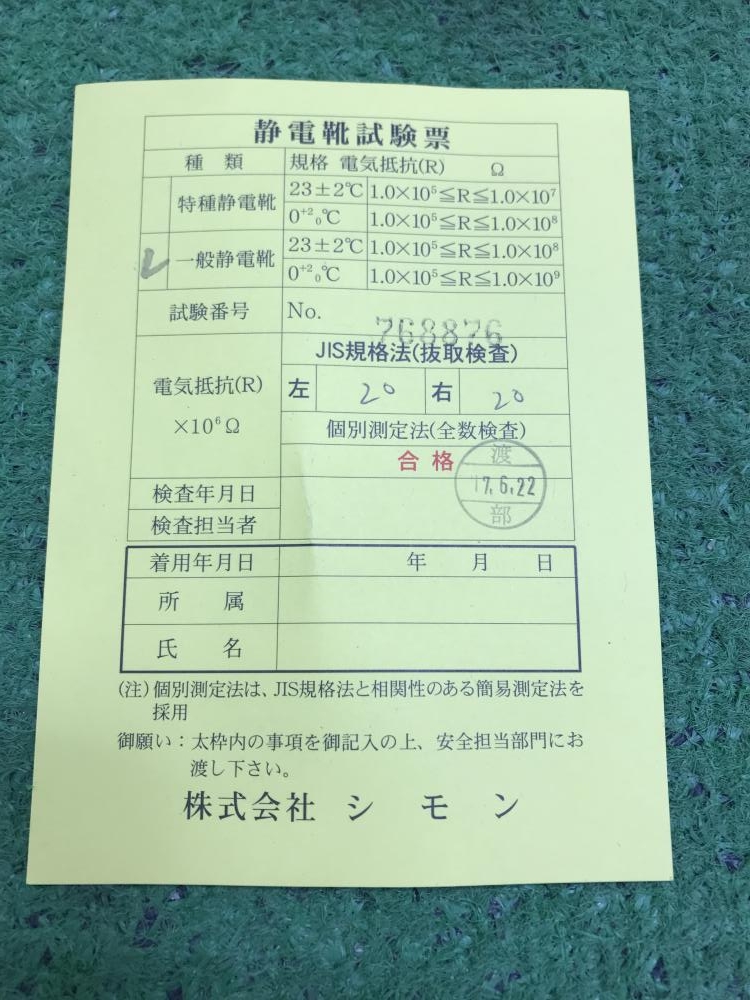 静電靴試験票
種 類 規格 電気抵抗(R) Ω
特種静電靴 23±2℃ 1.0×10⁵≦R≦1.0×10⁷
0⁺²₀℃ 1.0×10⁵≦R≦1.0×10⁸
レ 一般静電靴 23±2℃ 1.0×10⁵≦R≦1.0×10⁸
0⁺²₀℃ 1.0×10⁵≦R≦1.0×10⁹
試験番号 No. 768876
JIS規格法(抜取検査)
電気抵抗(R) 左 20 右 20
×10⁶Ω
個別測定法(全数検査)
合格
渡
17.6.22
部
検査年月日
検査担当者
着用年月日 年 月 日
所 属
氏 名
(注)個別測定法は、JIS規格法と相関性のある簡易測定法を
採用
御願い:太枠内の事項を御記入の上、安全担当部門にお
渡し下さい。
株式会社 シモン